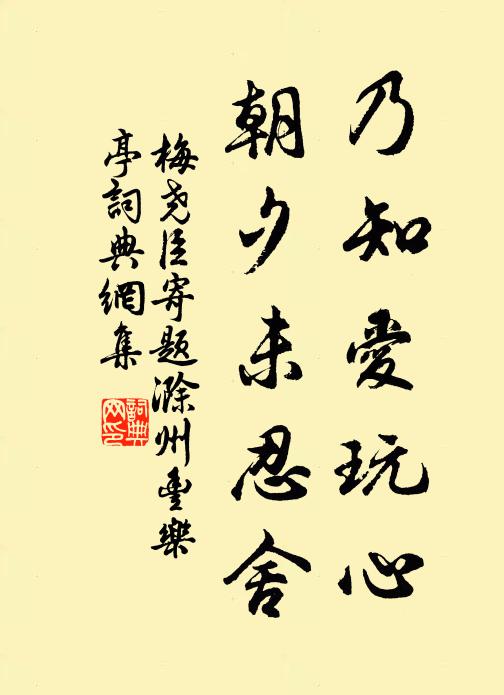 乃知爱玩心
朝夕未忍舍
梅尧臣寄题滁州豊樂
亭詞典網集
詞典
网印